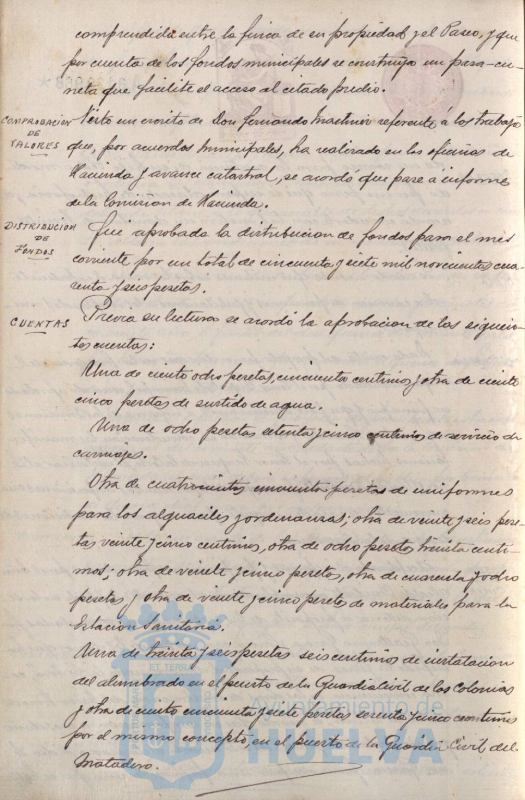 comprendida entre la finca de su propiedad y el Paseo, y que
por cuenta de los fondos municipales se construya un pasa-cu-
neta que facilite el acceso al citado predio.
COMPROBACION
DE
VALORES
Visto un escrito de Don Fernando Martinez referente á los trabajos
que, por acuerdos municipales, ha realizado en las oficinas de
Hacienda y avance catastral, se acordó que pase á informe
de la Comision de Hacienda.
DISTRIBUCION
DE
FONDOS
Fué aprobada la distribucion de fondos para el mes
corriente por un total de cincuenta y siete mil novecientas cua-
renta y seis pesetas.
CUENTAS
Previa su lectura se acordó la aprobacion de las siguien-
tes cuentas:
Una de ciento ocho pesetas, cincuenta centimos y otra de veinte
cinco pesetas de surtido de agua.
Una de ocho pesetas setenta y cinco centimos de servicio de
carruajes.
Otra de cuatrocientas cincuenta pesetas de uniformes
para los alguaciles y ordenanzas; otra de veinte y seis pese-
tas veinte y cinco centimos, otra de ocho pesetas treinta centi-
mos; otra de veinte y cinco pesetas, otra de cuarenta y ocho
pesetas, y otra de veinte y cinco pesetas de materiales para la
Estacion Sanitaria.
Una de treinta y seis pesetas seis centimos de instalacion
del alumbrado en el puesto de la Guardia Civil de las Colonias
y otra de ciento cincuenta y siete pesetas sesenta y cinco centimos
por el mismo concepto, en el puesto de la Guardia Civil del
Matadero.
Ayuntamiento de
HUELVA